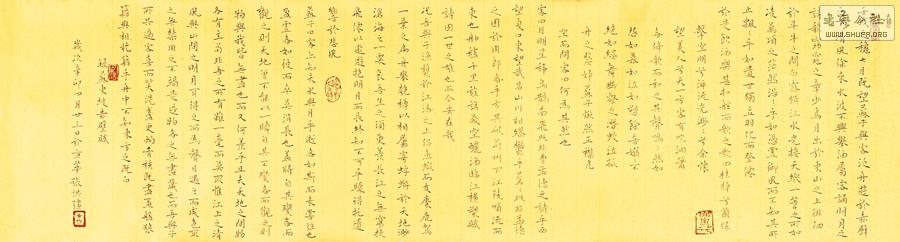 壬戌之秋七月既望蘇子與客泛舟遊於赤壁
清風徐來水波不興舉酒屬客誦明月之
詩歌窈窕之章少焉月出於東山之上徘徊
於斗牛之間白露橫江水光接天縱一葦之所如
凌萬頃之茫然浩浩乎如馮虛御風而不知其所
止飄飄乎如遺世獨立羽化而登僊
於是飲酒樂甚扣舷而歌之歌曰桂棹兮蘭槳
擊空明兮泝流光渺渺兮余懷
望美人兮天一方客有吹洞簫
者倚歌而和之其聲嗚嗚然如
怨如慕如泣如訴餘音嫋嫋不
絕如縷舞幽壑之潛蛟泣孤
舟之嫠婦蘇子愀然正襟危
坐而問客曰何為其然也
客曰月明星稀烏鵲南飛此非曹孟德之詩乎西
望夏口東望武昌山川相繆鬱乎蒼蒼此非孟德
之困於周郎者乎方其破荊州下江陵順流而
東也舳艫千里旌旗蔽空釃酒臨江橫槊賦
詩固一世之雄也而今安在哉
況吾與子漁樵於江渚之上侶魚蝦而友麋鹿駕
一葉之扁舟舉匏樽以相屬寄蜉蝣於天地渺
滄海之一粟哀吾生之須臾羨長江之無窮挾
飛仙以遨遊抱明月而長終知不可乎驟得託遺
響於悲風
蘇子曰客亦知夫水與月乎逝者如斯而未嘗往也
盈虛者如彼而卒莫消長也蓋將自其變者而
觀之則天地曾不能以一瞬自其不變者而觀之則
物與我皆無盡也而又何羨乎且夫天地之間物
各有主苟非吾之所有雖一毫而莫取惟江上之清
風與山間之明月耳得之而為聲目遇之而成色取
之無禁用之不竭是造物者之無盡藏也而吾與子
所共適客喜而笑洗盞更酌肴核既盡盃盤狼
籍相與枕藉乎舟中不知東方之既白
蘇東坡赤壁賦
歲次辛卯四月廿二日於京華張洪
WWW.SHUFA.ORG